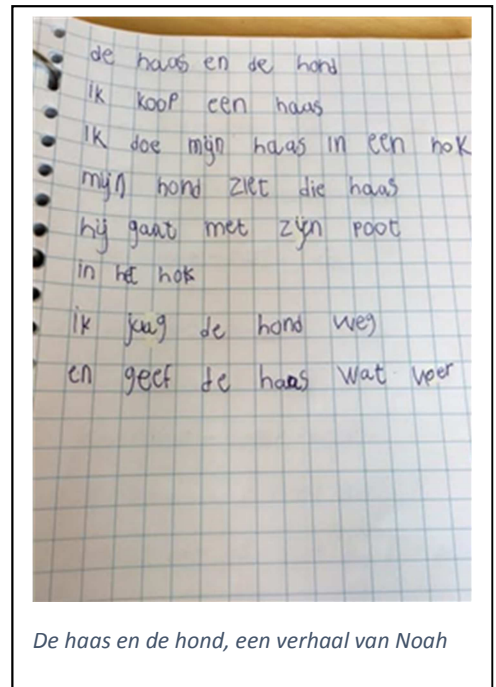 de haas en de hond
ik koop een haas
ik doe mijn haas in een hok
mijn hond ziet die haas
hij gaat met zijn poot
in het hok
ik jaag de hond weg
en geef de haas wat voer
De haas en de hond, een verhaal van Noah